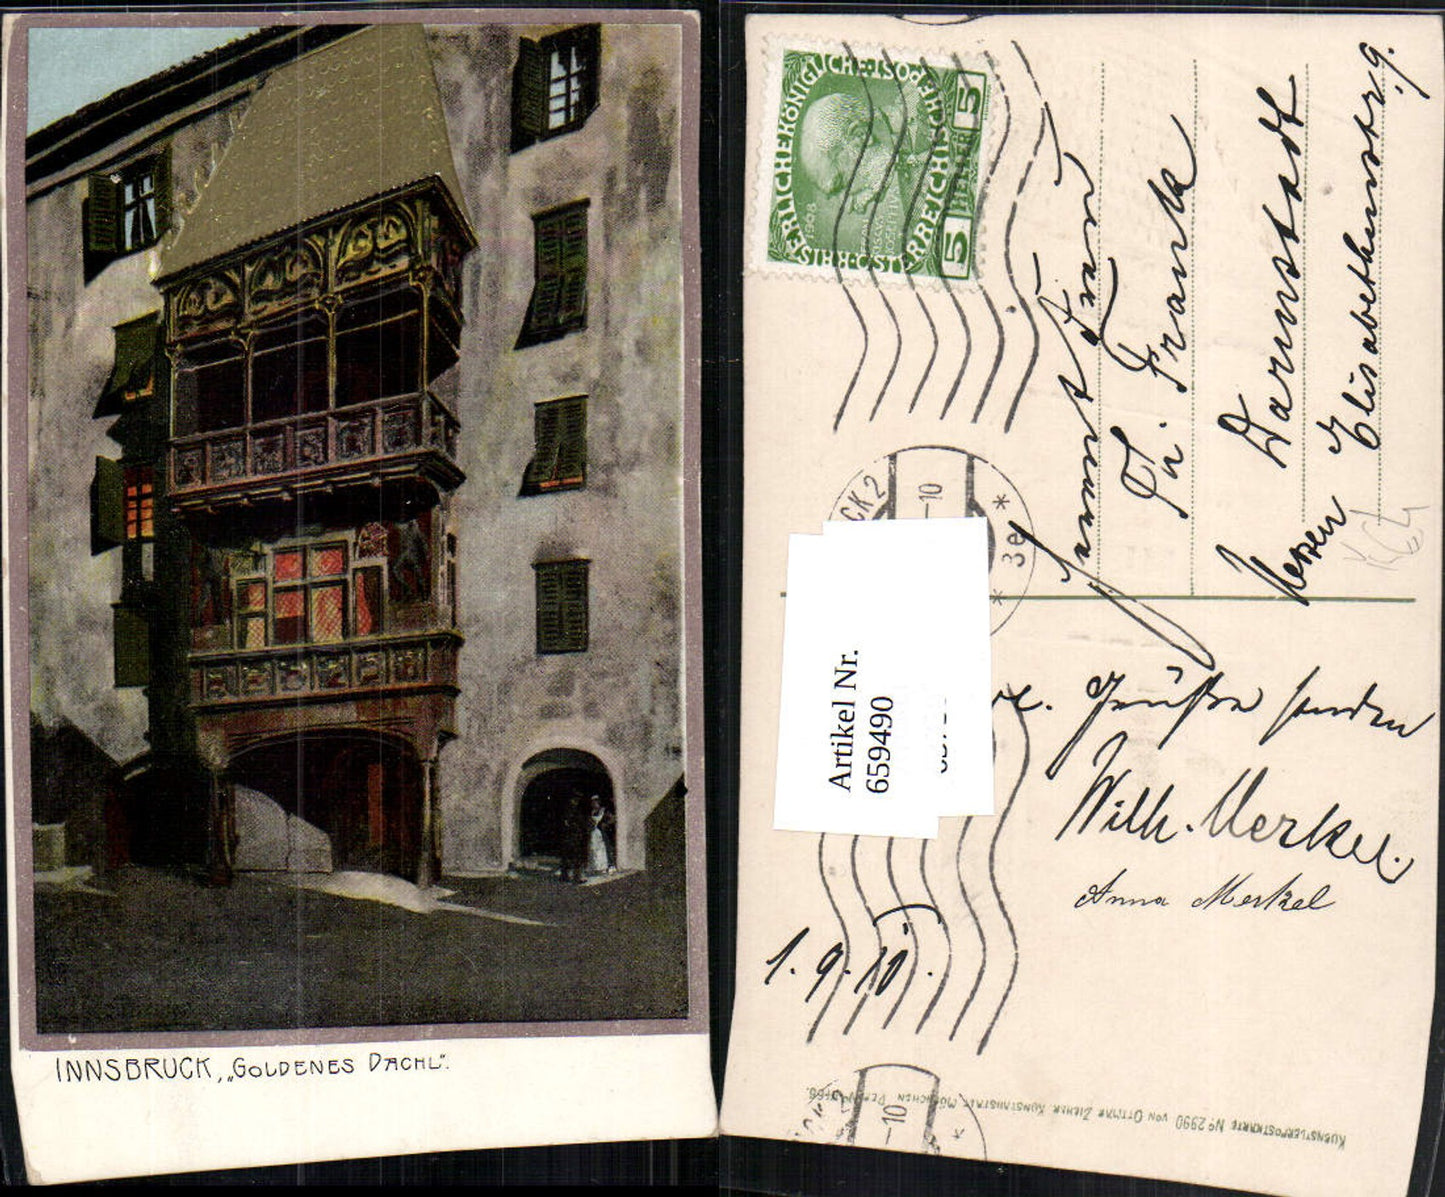 INNSBRUCK, „GOLDENES DACHL“.
KAISERLICHE KÖNIGLICHE ÖSTERREICHISCHE POST
5 HELLER 5
1908
CK 2
-10
3e
Artikel Nr.
659490
Frau
Th. Franke
Darmstadt
Hessen Elisabethenstr 9.
Grüße senden
Wilh. Merkel.
Anna Merkel
1. 9. 10.
-10
KUENSTLERPOSTKARTE No 2990 VON OTTMAR ZIEHER KUNSTANSTALT MÜNCHEN